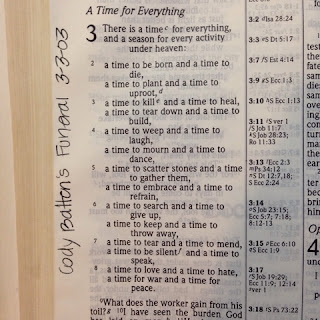 A Time for Everything
3 There is a time c for everything,
and a season for every activity
under heaven:
2 a time to be born and a time to
die,
a time to plant and a time to
uproot, d
3 a time to kill e and a time to heal,
a time to tear down and a time to
build,
4 a time to weep and a time to
laugh,
a time to mourn and a time to
dance,
5 a time to scatter stones and a time
to gather them,
a time to embrace and a time to
refrain,
6 a time to search and a time to
give up,
a time to keep and a time to
throw away,
7 a time to tear and a time to mend,
a time to be silent f and a time to
speak,
8 a time to love and a time to hate,
a time for war and a time for
peace.
9 What does the worker gain from his
toil? g 10 I have seen the burden God
Cody Batton's Funeral 3-3-03
3:2 d Isa 28:24
3:3 e S Dt 5:17
3:7 f S Est 4:14
3:9 g S Ecc 1:3
3:10 h S Ecc 1:13
3:11 i S ver 1
j S Job 11:7
k S Job 28:23;
Ro 11:33
3:13 l Ecc 2:3
m Ps 34:12
n S Dt 12:7,18;
S Ecc 2:24
3:14
o S Job 23:15;
Ecc 5:7; 7:18;
8:12-13
3:15 p Ecc 6:10
q S Ecc 1:9
3:17
r S Job 19:29;
Ecc 11:9; 12:14
s ver 1
3:18 t S Ps 73:22
4